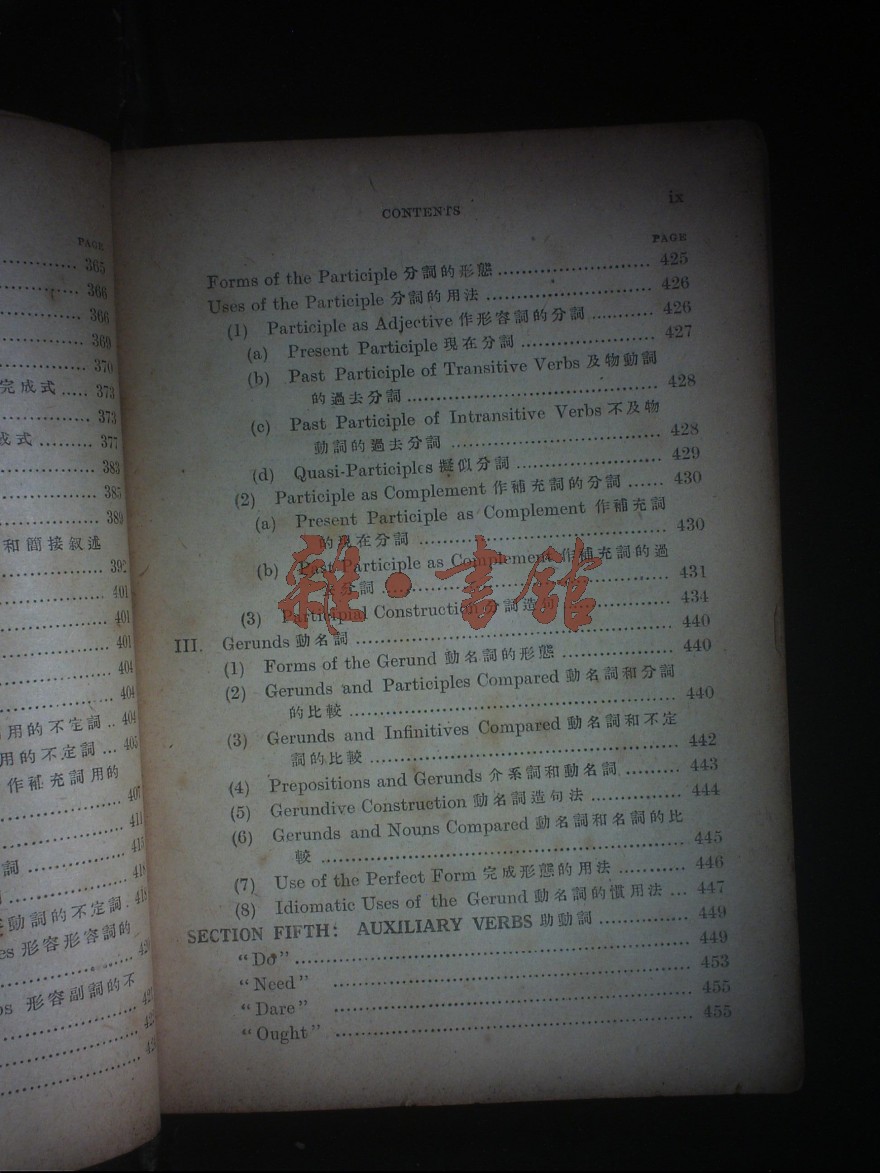 PAGE
365
366
366
369
370
完成式 373
373
成式 377
383
385
389
和間接叙述
392
401
401
401
404
404
用的不定詞 404
用的不定詞 405
作補充詞用的
407
411
415
詞 418
動詞的不定詞 418
es 形容形容詞的
形容副詞的不
CONTENTS ix
PAGE
Forms of the Participle 分詞的形態 425
Uses of the Participle 分詞的用法 426
(1) Participle as Adjective 作形容詞的分詞 426
(a) Present Participle 現在分詞 427
(b) Past Participle of Transitive Verbs 及物動詞
的過去分詞 428
(c) Past Participle of Intransitive Verbs 不及物
動詞的過去分詞 428
(d) Quasi-Participles 擬似分詞 429
(2) Participle as Complement 作補充詞的分詞 430
(a) Present Participle as Complement 作補充詞
的現在分詞 430
(b) Past Participle as Complement 作補充詞的過
去分詞 431
(3) Participial Construction 分詞造句 434
III. Gerunds 動名詞 440
(1) Forms of the Gerund 動名詞的形態 440
(2) Gerunds and Participles Compared 動名詞和分詞
的比較 440
(3) Gerunds and Infinitives Compared 動名詞和不定
詞的比較 442
(4) Prepositions and Gerunds 介系詞和動名詞 443
(5) Gerundive Construction 動名詞造句法 444
(6) Gerunds and Nouns Compared 動名詞和名詞的比
較 445
(7) Use of the Perfect Form 完成形態的用法 446
(8) Idiomatic Uses of the Gerund 動名詞的慣用法 447
SECTION FIFTH: AUXILIARY VERBS 助動詞 449
"Do" 449
"Need" 453
"Dare" 455
"Ought" 455
雜·書館